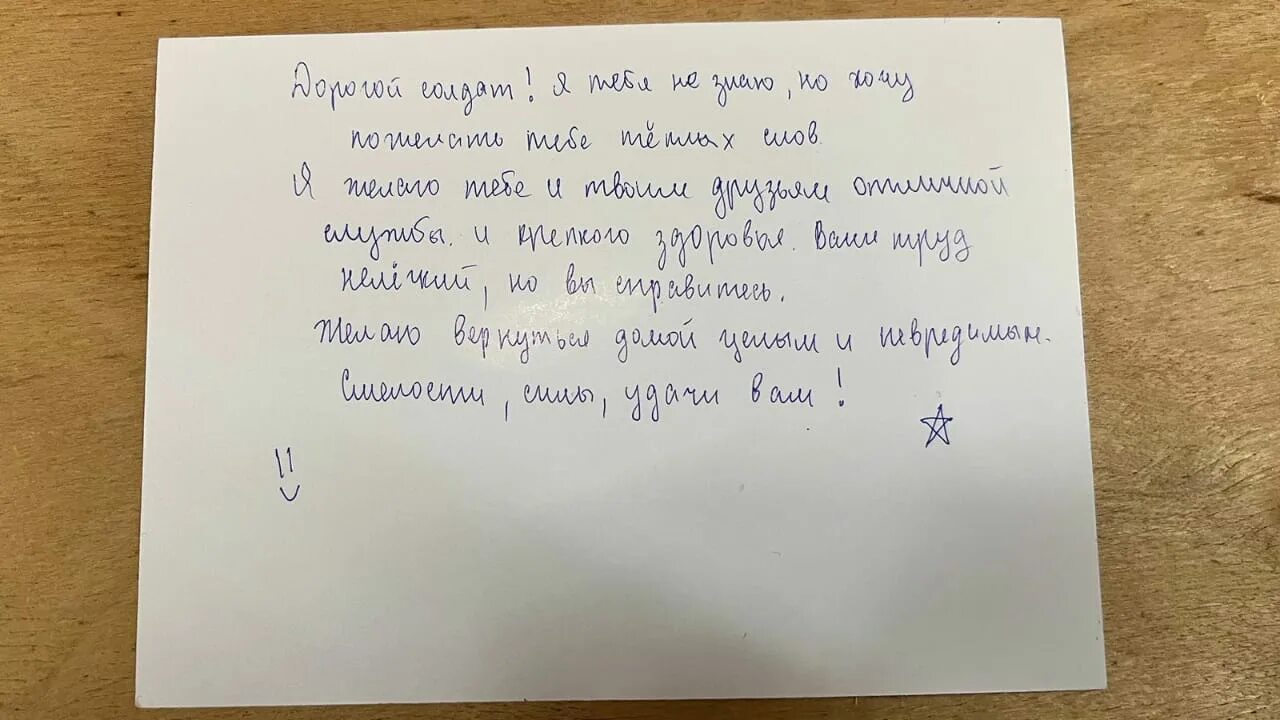 Дорогой солдат! Я тебя не знаю, но хочу
пожелать тебе тёплых слов.
Я желаю тебе и твоим друзьям отличной
службы. и крепкого здоровья. Ваш труд
нелёгкий, но вы справитесь.
Желаю вернуться домой целым и невредимым.
Смелости, силы, удачи вам!